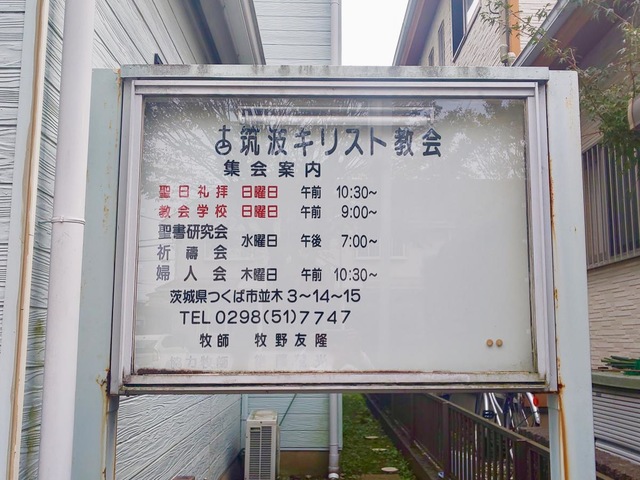 筑波キリスト教会
集会案内
聖日礼拝 日曜日 午前 10:30~
教会学校 日曜日 午前 9:00~
聖書研究会
祈禱会 水曜日 午後 7:00~
婦人会 木曜日 午前 10:30~
茨城県つくば市並木3~14~15
TEL 0298(51)7747
牧師 牧野友隆
協力牧師